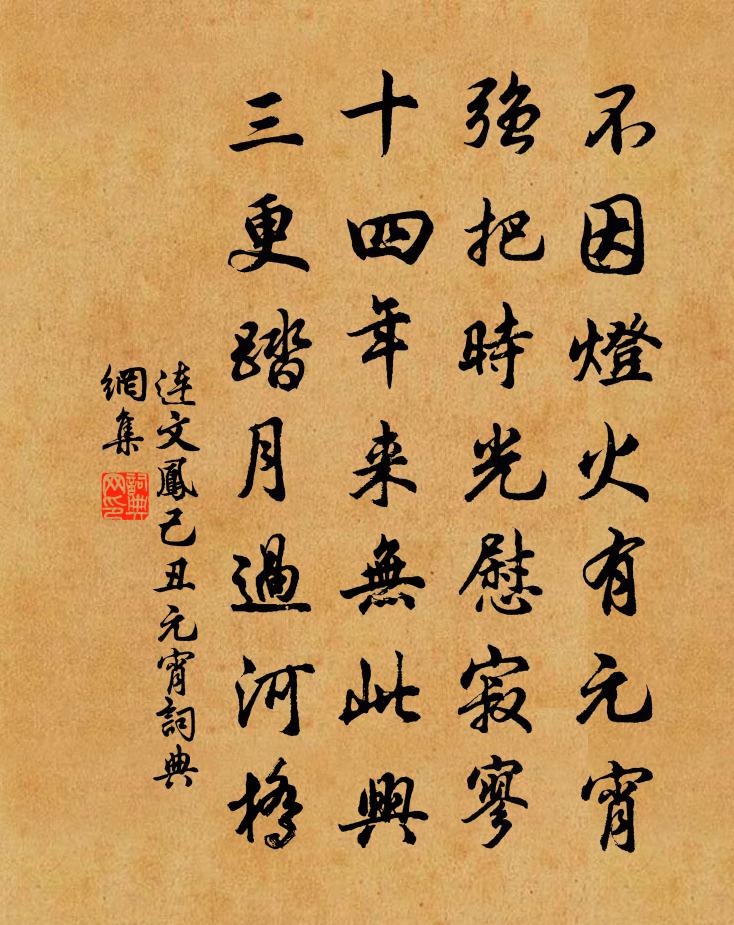 不因燈火有元宵
強把時光慰寂寥
十四年来無此興
三更踏月過河橋
連文鳳己丑元宵詞典
網集
詞典网印